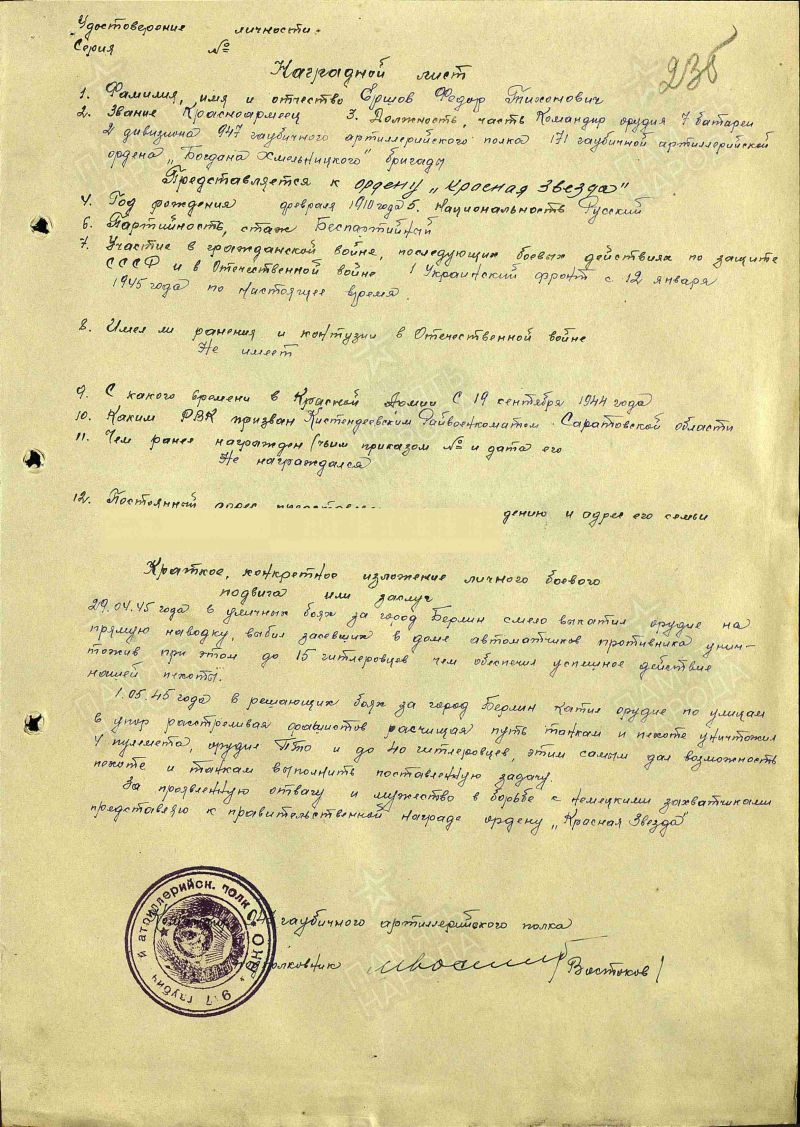 Удостоверение личности.
Серия №
235
Наградной лист
1. Фамилия, имя и отчество Ершов Федор Тихонович
2. Звание Красноармеец 3. Должность, часть Командир орудия 7 батареи
2 дивизиона 947 гаубичного артиллерийского полка 171 гаубичной артиллерийской
ордена „Богдана Хмельницкого" бригады
Представляется к ордену „Красная Звезда"
4. Год рождения февраля 1910 года 5. Национальность Русский
6. Партийность, стаж Беспартийный
7. Участие в гражданской войне, последующих боевых действиях по защите
СССР и в Отечественной войне 1 Украинский фронт с 12 января
1945 года по настоящее время.
8. Имел ли ранения и контузии в Отечественной войне
Не имеет
9. С какого времени в Красной Армии С 19 сентября 1944 года
10. Каким РВК призван Кистендеевским Райвоенкоматом Саратовской области
11. Чем ранее награжден (чьим приказом № и дата его
Не награждался
12. Постоянный адрес дению и адрес его семьи
Краткое, конкретное изложение личного боевого
подвига или заслуг
29.04.45 года в уличных боях за город Берлин смело выкатил орудие на
прямую наводку, выбил засевших в доме автоматчиков противника унич-
тожив при этом до 15 гитлеровцев чем обеспечил успешное действие
нашей пехоты.
1.05.45 года в решающих боях за город Берлин катил орудие по улицам
в упор расстреливая фашистов расчищая путь танкам и пехоте уничтожил
4 пулемета, орудие ПТО и до 40 гитлеровцев, этим самым дал возможность
пехоте и танкам выполнить поставленную задачу.
За проявленную отвагу и мужество в борьбе с немецкими захватчиками
представляю к правительственной награде ордену „Красная Звезда"
гаубичного артиллерийского полка
полковник Востоков /